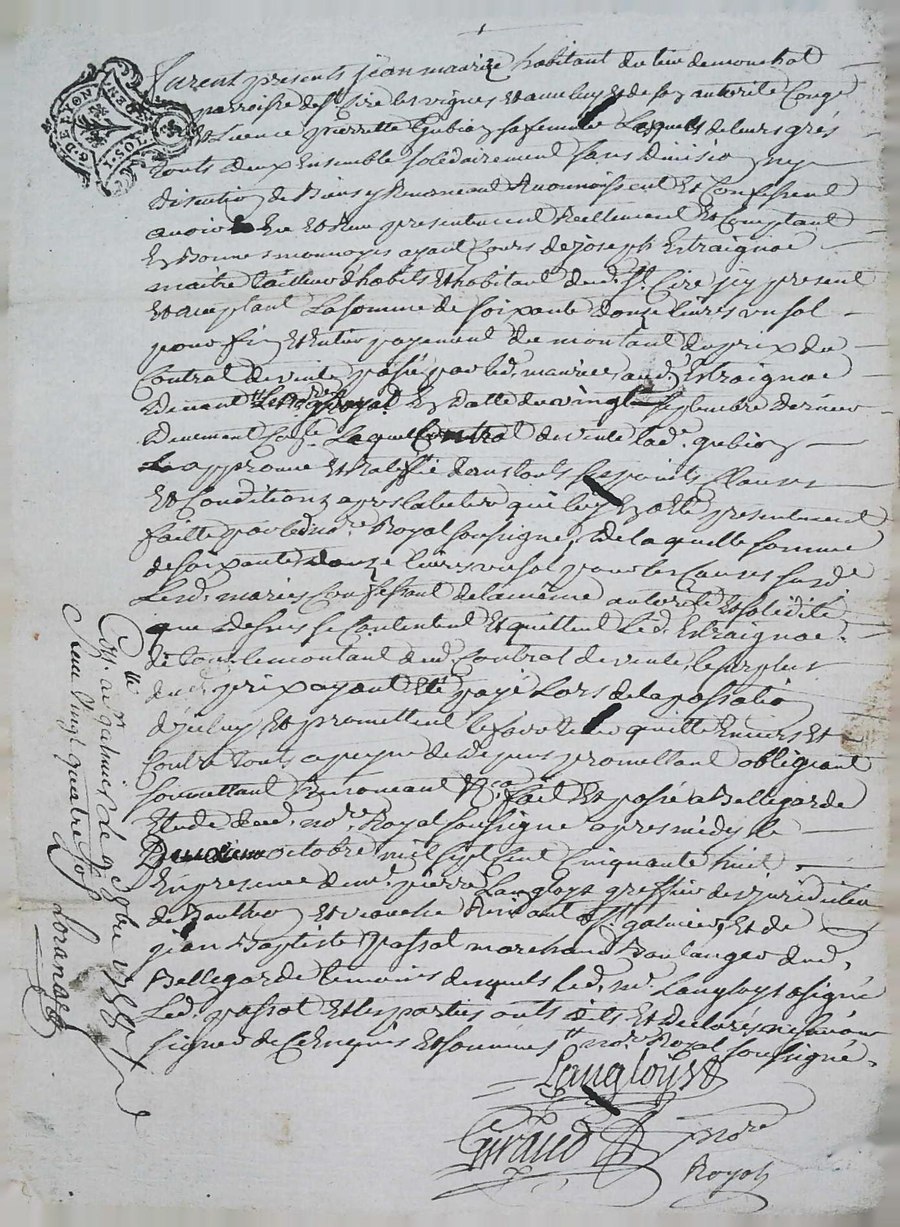 furent presents jean maurice habitant du lieu de mouchal
parroisse de st Cire les vignes et avec luy et de son autorité Congé
et Licence pierrette Gubian sa femme Lesquels de leurs grés
touts deux Ensemble solidairement sans division ny
discution de Biens y Renonceant Reconnoissent Et Confessent
avoir Eu et Receu presentement Réellement Et Comptant
En Bonnes monnoyes ayant Cours de joseph Extraignac
maitre tailleur d'habits et habitant dud. st Cire jcy present
et acceptant La somme de soixante douse livres un sol
pour fin et Entier payement du montant du prix du
Contrat de vente passé par led. maurice aud. Extraignac
devant Le nore Royal En datte du vingt septembre dernier
duement Lequel Contrat de vente lad. gubian
Le approuve et Ratiffie dans touts ses points Clauses
et Conditions apres lecture qui luy En a Eté presentement
faitte par led. nore Royal soussigné, de laquelle somme
de soixante douze livres un sol pour les Causes susd.
Lesd. mariés Confessant de la même autorité et solidité
que dessus se Contentent Et quittent Led. Extraignac
de tout le montant dud. Contrat de vente le surplus
dud. prix ayant Eté payé Lors de la passation
d'jceluy, Et promettent le faire tenir quitte Envers Et
Contre touts a peyne de depens promettant obligeant
soumettant Renonceant &ca fait Et passé a Bellegarde
Etude dud. nore Royal soussigné apres midy le
octobre mil sept cent cinquante huit
En presence de me. pierre Langloys greffier des juridiction
de et Residant a st galmier, Et de
jean Baptiste passot marchand Boulanger dud.
Bellegarde temoins desquels Led. me. Langloys a signé
Led. passot Et les parties onts dits Et Declarés ne savoir
signer de Ce Enquis Et sommés nore Royal soussigné.
Langloys
Giraud nore
Royal
Cllé a st galmier Le 9bre 1758
Receu vingt quatre sols
Loranchet
G. DE LYON